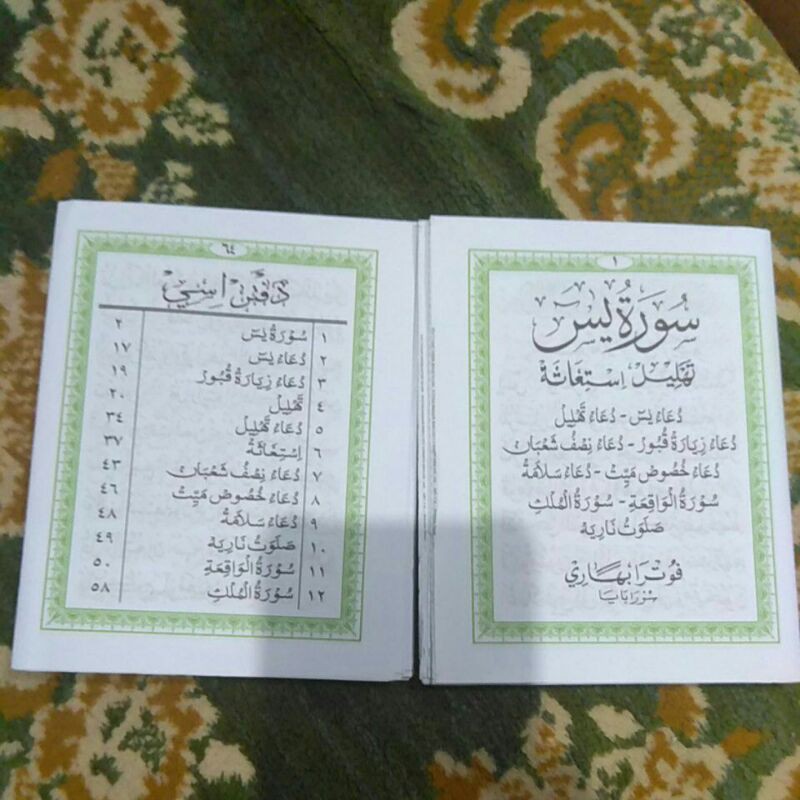 ١
سُوْرَةُ يٰسٓ
تَهْلِيْل اِسْتِغَاثَة
دُعَاءُ يٰسٓ - دُعَاءُ تَهْلِيْلُ
دُعَاءُ زِيَارَةُ قُبُورْ - دُعَاءُ نِصْفُ شَعْبَانْ
دُعَاءُ خُصُوصْ مَيِّتْ - دُعَاءُ سَلَامَةُ
سُوْرَةُ الْوَاقِعَةِ - سُوْرَةُ الْمُلْكِ
صَلَوَتُ نَارِيَهْ
فوترا بهاري
سورابايا
٦٤
دفتر اسي
١ سُوْرَةُ يٰسٓ ٢
٢ دُعَاءُ يٰسٓ ١٧
٣ دُعَاءُ زِيَارَةُ قُبُورْ ١٩
٤ تَهْلِيْلُ ٢٠
٥ دُعَاءُ تَهْلِيْلُ ٣٤
٦ اِسْتِغَاثَةُ ٣٧
٧ دُعَاءُ نِصْفُ شَعْبَانْ ٤٣
٨ دُعَاءُ خُصُوصْ مَيِّتْ ٤٦
٩ دُعَاءُ سَلَامَةُ ٤٨
١٠ صَلَوَتُ نَارِيَهْ ٤٩
١١ سُوْرَةُ الْوَاقِعَةِ ٥٠
١٢ سُوْرَةُ الْمُلْكِ ٥٨